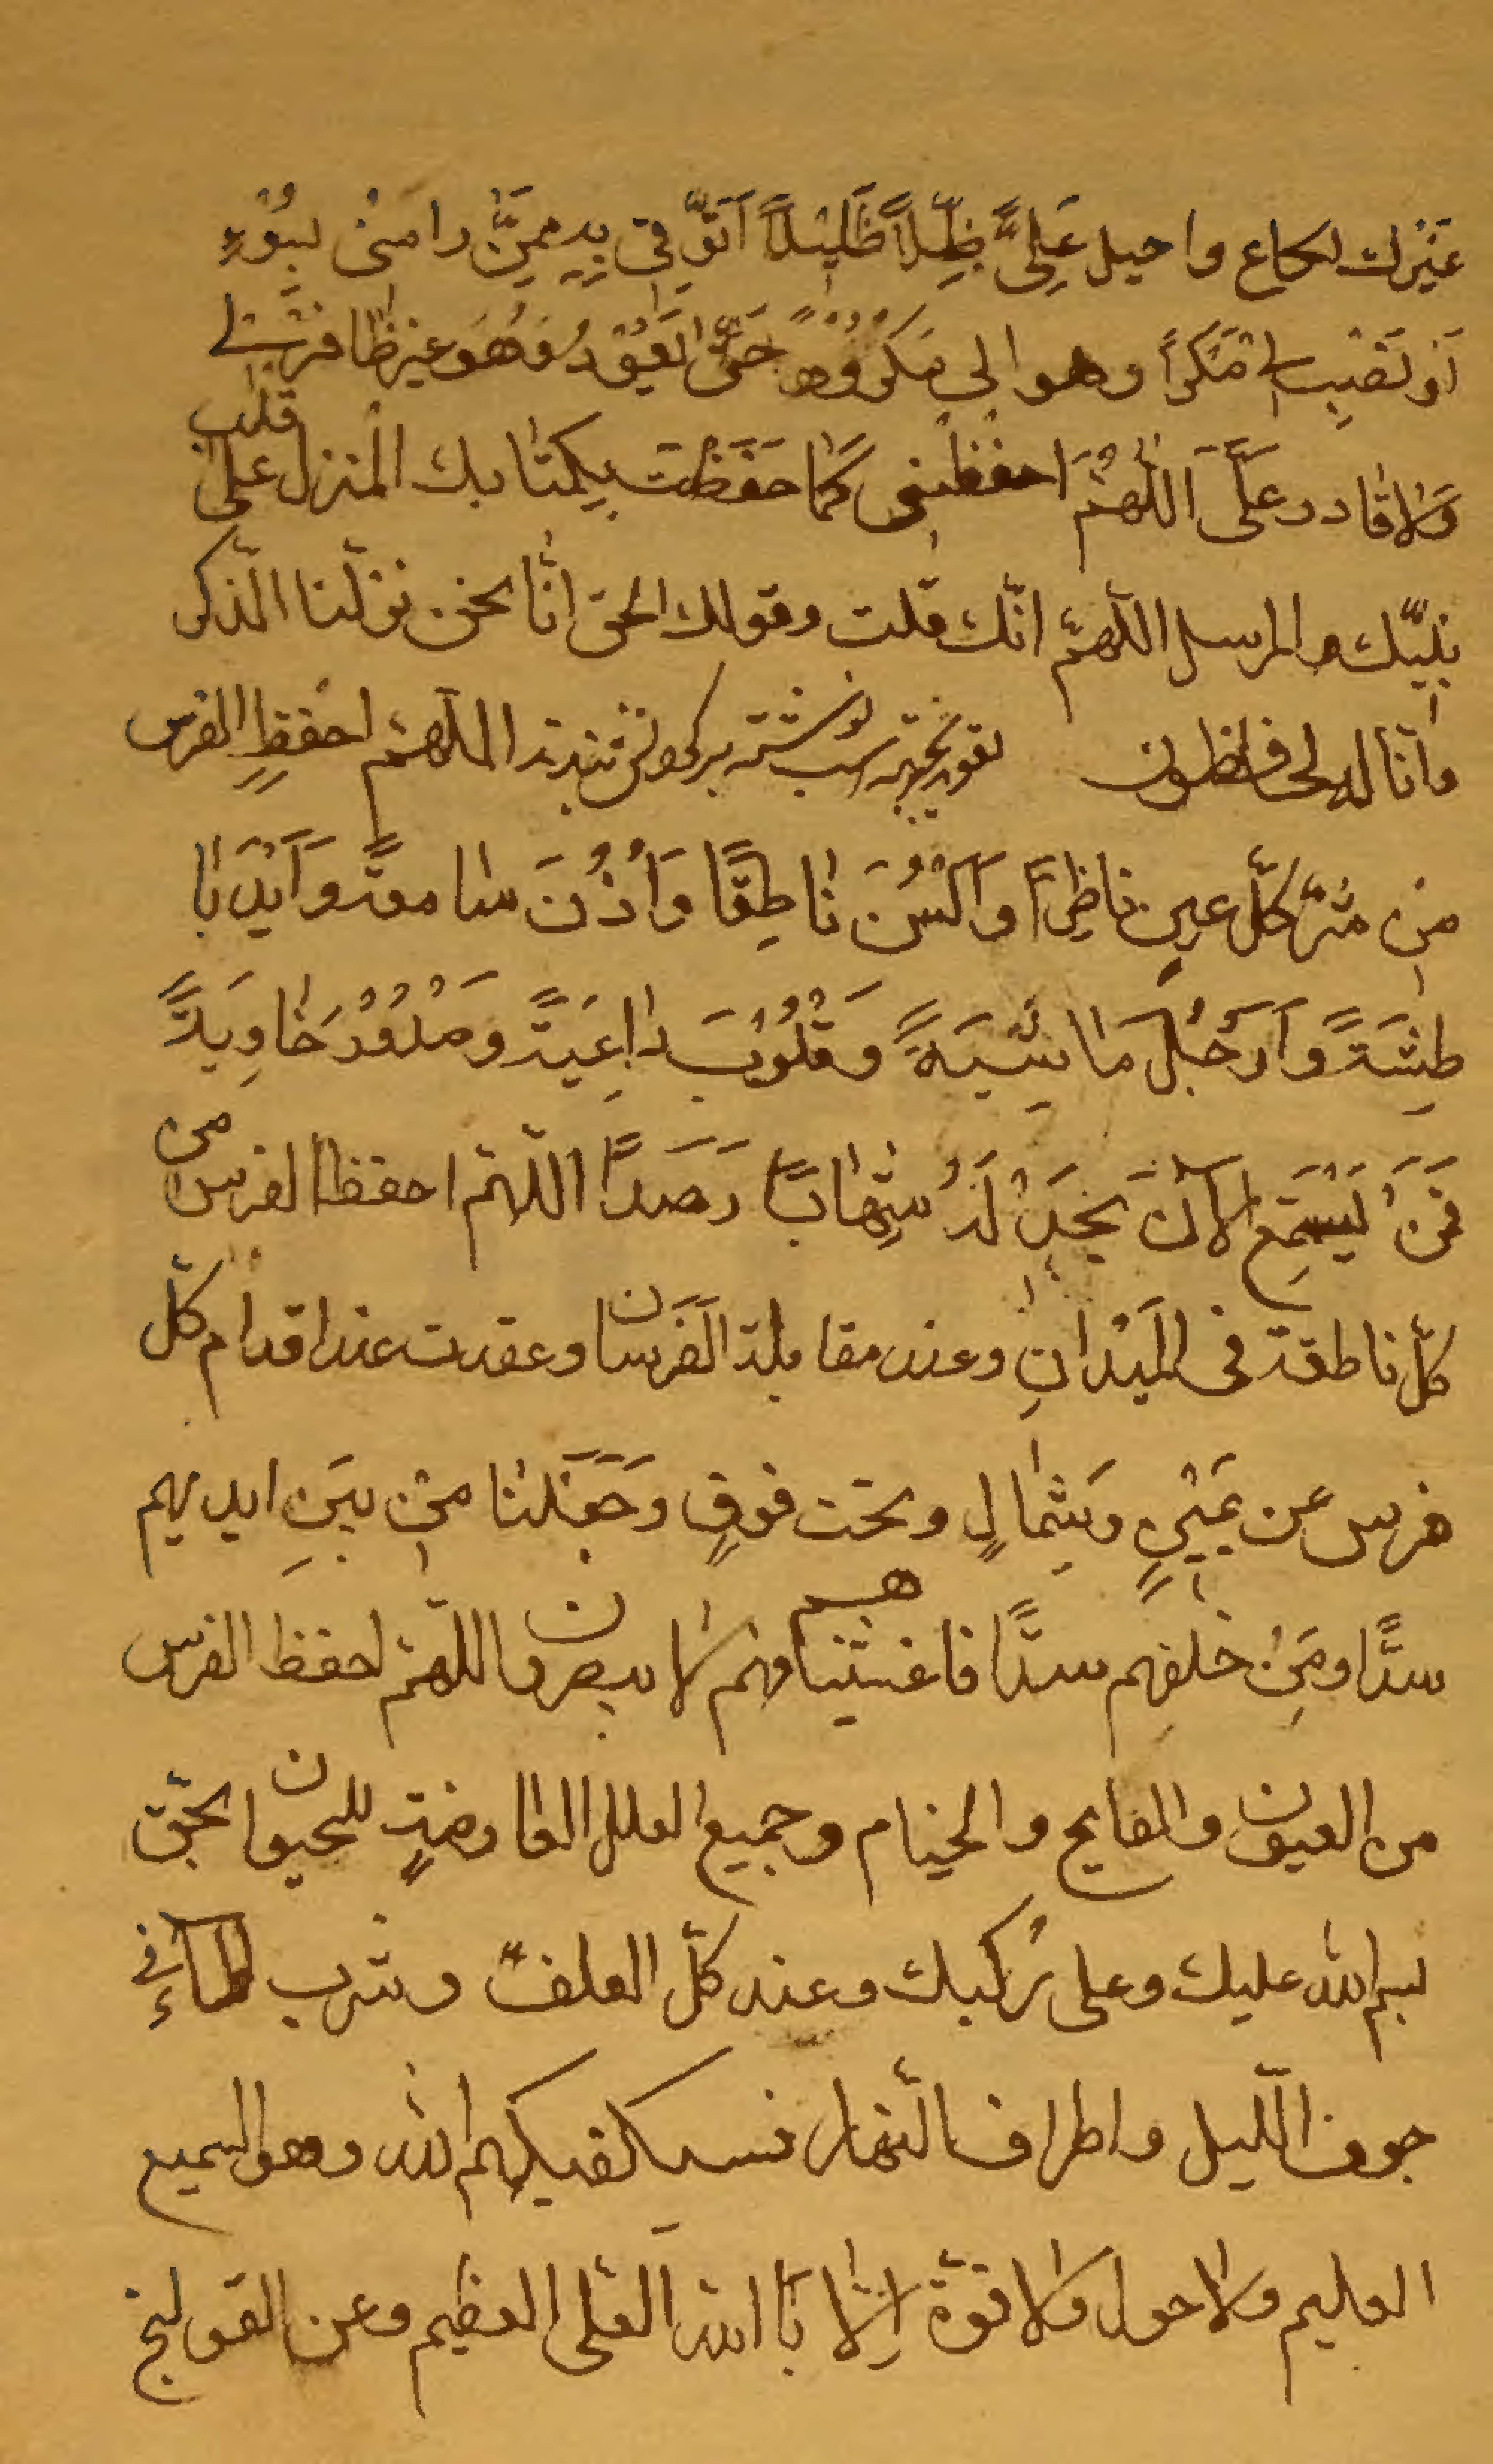 عَيْنك واحيل عَلِيَّ ظِلّاً ظَلِيْلاً اَتَوَّقي بِهِ مِمَّن رامنى بِسُوْءٍ
اَوْ نَصَبَ لى مَكراً وهو الى مَكرُوْهٍ حَتّى يَعُوْدُ فَهُوَ غير ظافر بى
وَلا قادر عَلَّى اَللّٰهُمَّ احفظنى كَما حَفَظْتَ بِكتابك المُنزل على قلب
نبيّك المرسل اللّهمّ انّك قلت وقولك الحق انّا نحن نزلنا الذّكر
وانّا له لحافظون بجهة اسب نوشته بر كردنش بندند اللّهمّ احفظِ الفرس
من شرّ كلّ عين ناظِرةً وَاَلْسُنَ ناطِقًا وَاُذُنَ سامعةً وَاَيْدَ با
طِشَةً وَاَرْجُلَ ماشِيَةً وَقُلُوْبَ داعِيَةً وَصُدُوْرَ خاوِيَةً
فَمَنْ يَسْتَمِعِ الآنَ يَجِدْ لَهُ شِهابًا رَصَدًا اللّهمّ احفظ الفرس من
كلّ ناطقة فى المَيْدانِ وعند مقابلة الفَرَسان وعقدت عند اقدام كلّ
فرس عن يَمينٍ وَشِمالٍ وتحت فوقٍ وَجَعَلنا مِن بينِ ايديهم
سدًّا ومِنْ خلفِهم سدًّا فاغشيناهم فهم لا يبصرون اللّهمّ احفظ الفرس
من العيون والفايج والخيام وجميع العلل العارضةٍ للحيوان بحقّ
بسم الله عليك وعلى رُكبك وعند كلّ العلف وشرب الماء فى
جوف اللّيل واطراف النّهار فسيكفيكهم الله وهو السميع
العليم ولا حول ولا قوّة اِلّا بالله العلى العظيم وعن القولنج